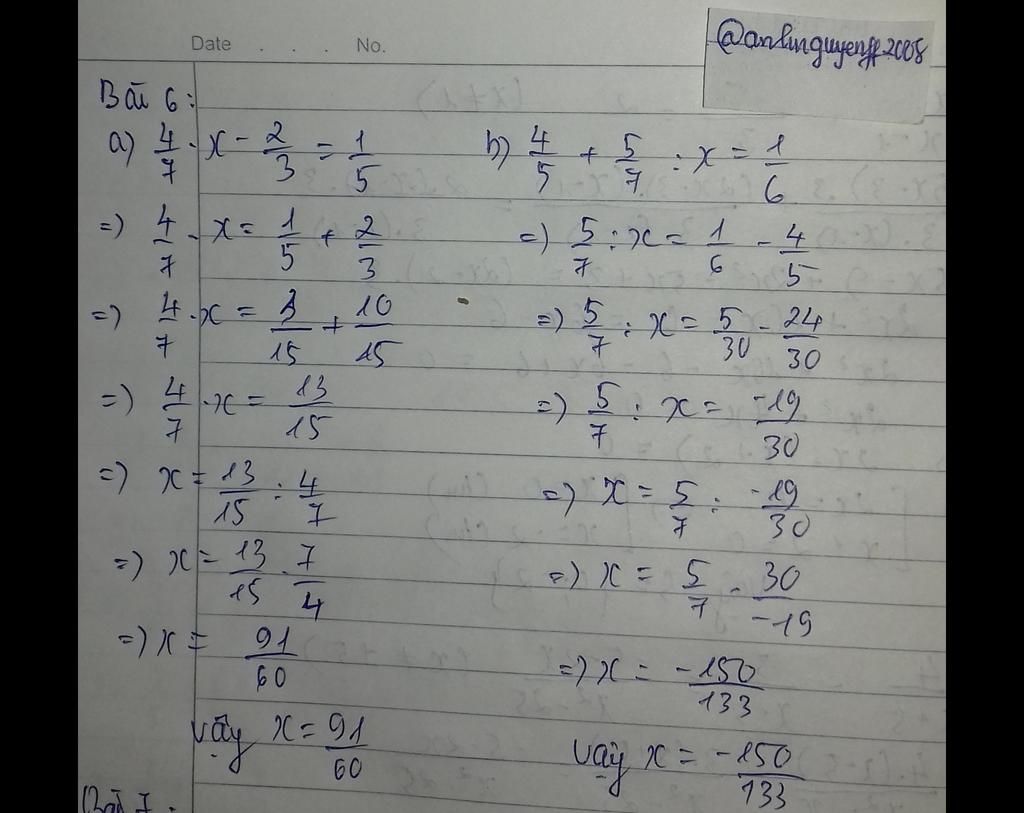 Date . . . No.
@anlinguyenff2008
Bài 6:
a) 4/7 . x - 2/3 = 1/5
=) 4/7 . x = 1/5 + 2/3
=) 4/7 . x = 3/15 + 10/15
=) 4/7 . x = 13/15
=) x = 13/15 : 4/7
=) x = 13/15 . 7/4
=) x = 91/60
Vậy x = 91/60
b) 4/5 + 5/7 : x = 1/6
=) 5/7 : x = 1/6 - 4/5
=) 5/7 : x = 5/30 - 24/30
=) 5/7 : x = -19/30
=) x = 5/7 : -19/30
=) x = 5/7 . 30/-19
=) x = -150/133
Vậy x = -150/133
Bài 7: